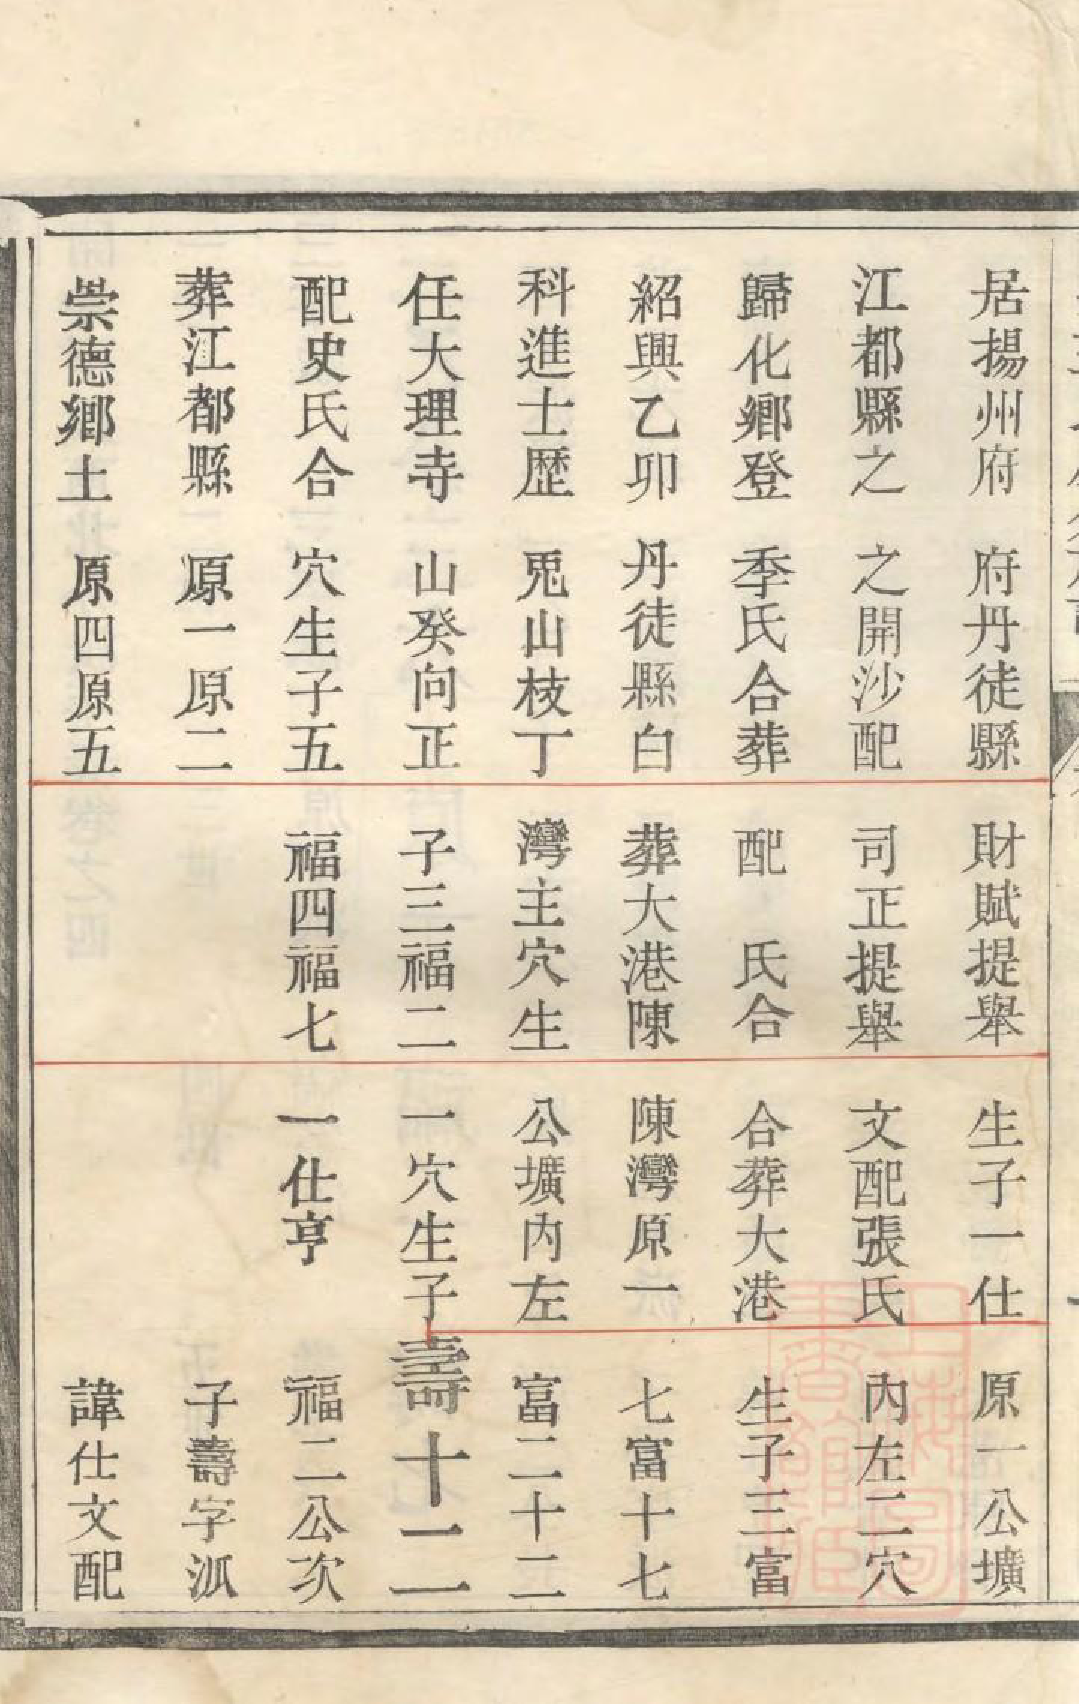 居揚州府
江都縣之
歸化鄉登
紹興乙卯
科進士歷
任大理寺
配史氏合
葬江都縣
崇德鄉土
府丹徒縣
之開沙配
季氏合葬
丹徒縣白
兎山枝丁
山癸向正
穴生子五
原一原二
原四原五
財賦提舉
司正提舉
配　氏合
葬大港陳
灣主穴生
子三福二
福四福七
生子一仕
文配張氏
合葬大港
陳灣原一
公壙内左
一穴生子
一仕亨
原一公壙
內左二穴
生子三富
七富十七
富二十二
壽十二
福二公次
子壽字派
諱仕文配
上海圖
書館藏